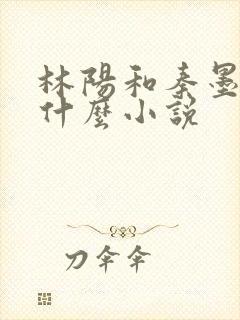 林陽和秦墨
什麼小說
刀伞伞